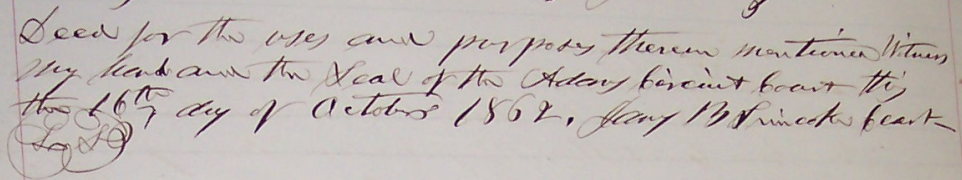 Deed for the uses and purposes therein mentioned Witness
my hand and the Seal of the Adams Circuit Court this
the 16th day of October 1862. James B Clerk
L S